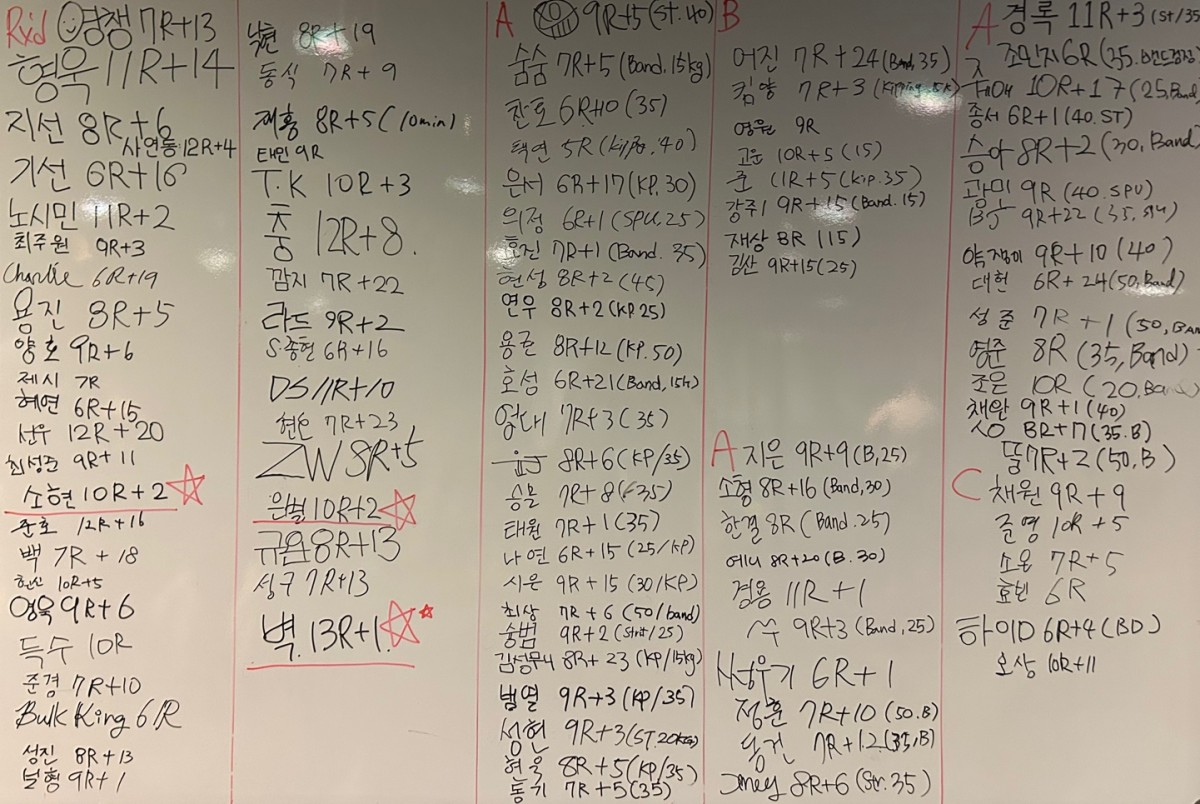 Rxd 영쟁 7R+13
형욱 11R+14
지선 8R+6
사연동 12R+4
기선 6R+16
노시민 11R+2
최주원 9R+3
Charlie 6R+19
용진 8R+5
양호 9R+6
제시 7R
혜연 6R+15
선우 12R+20
최성준 9R+11
소현 10R+2
준호 12R+16
백 7R+18
헌신 10R+5
영욱 9R+6
득수 10R
준경 7R+10
Bulk King 6R
성진 8R+13
보형 9R+1
낙현 8R+19
동식 7R+9
재홍 8R+5 (10min)
태민 9R
T.K 10R+3
충 12R+8
깜지 7R+22
라드 9R+2
S종현 6R+16
DS 11R+10
현 7R+23
ZW 8R+5
은별 10R+2
규완 8R+13
성구 7R+13
벽 13R+1
A 9R+5 (ST.40)
숨숨 7R+5 (Band.15kg)
찬호 6R+0 (35)
택연 5R (kipp.40)
은서 6R+17 (KP.30)
의정 6R+1 (SPU.25)
효진 7R+1 (Band.35)
현성 8R+2 (45)
연우 8R+2 (KP 25)
용근 8R+12 (KP.50)
호성 6R+21 (Band,15k)
영대 7R+3 (35)
8R+6 (KP/35)
승문 7R+8 (35)
태원 7R+1 (35)
나연 6R+15 (25/KP)
시은 9R+15 (30/KP)
최상 7R+6 (50/band)
숭범 9R+2 (Strit/25)
김성무니 8R+23 (KP/15kg)
범열 9R+3 (KP/35)
성현 9R+3 (ST.20KG)
현욱 8R+5 (KP/35)
동기 7R+5 (35)
B
어진 7R+24 (Band,35)
킴양 7R+3
영원 9R
고운 10R+5 (15)
준 11R+5 (Kip.35)
강주1 9R+15 (Band.15)
재상 8R (15)
김산 9R+15 (25)
A 지은 9R+9 (B,25)
소형 8R+16 (Band,30)
한결 8R (Band.25)
에니 8R+20 (B.30)
경용 11R+1
9R+3 (Band,25)
6R+1
정훈 7R+10 (50.B)
동건 7R+12 (35,B)
8R+6 (Str.35)
A 경록 11R+3 (St/35
조민지 6R (35.밴드
10R+17 (25,Band
종서 6R+1 (40.ST)
승아 8R+2 (30,Band)
광민 9R (40.SPU)
BJ 9R+22 (35.SPU)
9R+10 (40)
대헌 6R+24 (50,Band)
성준 7R+1 (50,BAN
영준 8R (35,Band)
조은 10R (20.Band
채완 9R+1 (40)
8R+17 (35.B)
똘 7R+2 (50.B)
C 채원 9R+9
준영 10R+5
소윤 7R+5
효빈 6R
하이D 6R+4 (BD)
오상 10R+11